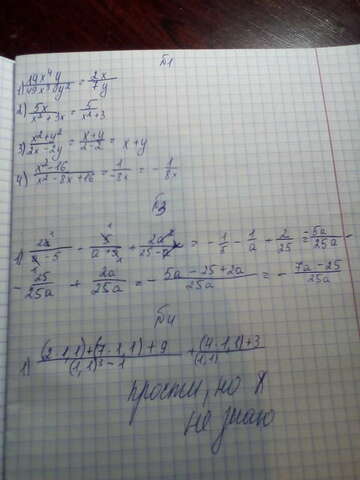 №1
1) 14x⁴y / 49x³y² = 2x / 7y
2) 5x / x²+3x = 5 / x²+3
3) x²+y² / 2x-2y = x+y / 2-2 = x+y
4) x²-16 / x²-8x+16 = 1 / -8x = - 1 / 8x
№3
- 1/5 - 1/a + 2/25 = -5a / 25a -
- 25 / 25a + 2a / 25a = - 5a-25+2a / 25a = - 7a-25 / 25a
№4
1) (2·1,1)+(7·1,1)+9 / (1,1)³-1 + (4·1,1)+3 / (1,1)
прости, но Я
не знаю